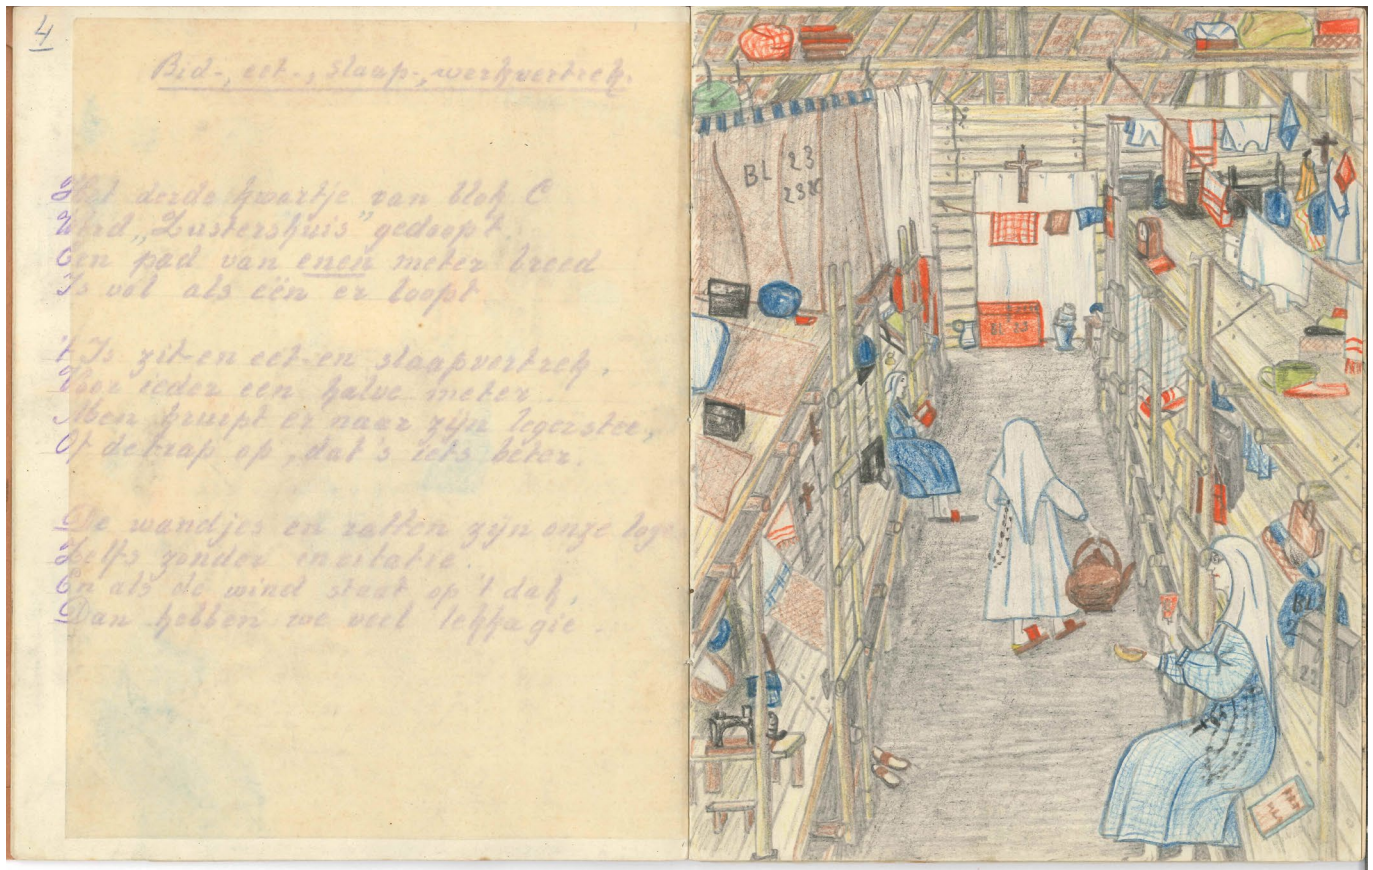 4
Bid-, eet-, slaap-, werkvertrek.
Het derde kwartje van blok C
Werd „Zustershuis" gedoopt.
Een pad van enen meter breed
Is vol als één er loopt.
't Is zit-en eet-en slaapvertrek,
Voor ieder een halve meter.
Men kruipt er naar zijn legerstee,
Of de trap op, dat's iets beter.
De wandjes en ratten zijn onze logé
Zelfs zonder invitatie.
En als de wind staat op 't dak,
Dan hebben we veel lekkagie.
BL 23
238
BL 23
BL
21